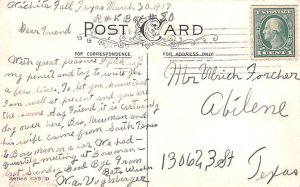 Wichita Fall Texas March 30, 1917
R # F Box # 80
Dear Friend
POST CARD
FOR CORRESPONDENCE
FOR ADDRESS ONLY
1 CENT 1
With great pleasure I pick
my pencil and try to write you
a few lines. To let you know that
I am well at present and you are
the same Say Friend it is certainly
dry over here, Bro, Newman and
his wife came from South Texas
& Boy man on a car We had
quarterly meeting at Bowman
last Sunday Good Bye From
Wm Vogtsberger
Mr Ulrich Forcher
Abilene
1306 N 3 St
Texas